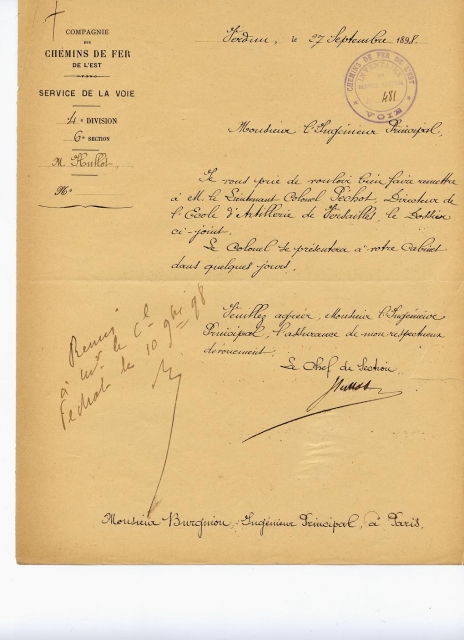 COMPAGNIE
DES
CHEMINS DE FER
DE L'EST
SERVICE DE LA VOIE
4e DIVISION
6e SECTION
M. Hullot,
No
Verdun, le 27 Septembre 1898.
CHEMINS DE FER DE L'EST
INVENTAIRE
481
Monsieur l'Ingénieur Principal,
Je vous prie de vouloir bien faire remettre
à M. le Lieutenant Colonel Péchot, Directeur de
l'Ecole d'Artillerie de Versailles, le dossier
ci-joint.
Le Colonel se présentera à votre Cabinet
dans quelques jours.
Veuillez agréer, Monsieur l'Ingénieur
Principal, l'assurance de mon respectueux
dévouement.
Le Chef de Section,
Remis
à Mr le Cl
Péchot le 10 9bre 98
Monsieur Burgnion, Ingénieur Principal, à Paris.